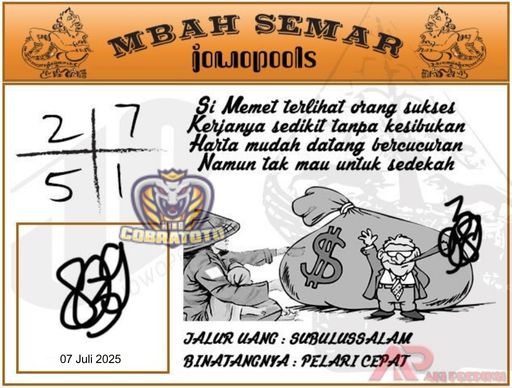 MBAH SEMAR
jowopools
2 7
5 1
Si Memet terlihat orang sukses
Kerjanya sedikit tanpa kesibukan
Harta mudah datang bercucuran
Namun tak mau untuk sedekah
KING
COBRATOTO
$
07 Juli 2025
JALUR UANG : SUBULUSSALAM
BINATANGNYA : PELARI CEPAT
AP